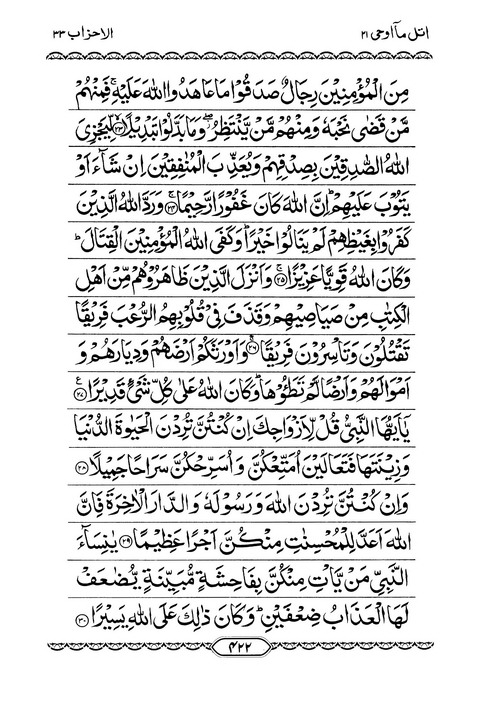 اتل مآ اوحی ۲۱
الاحزاب ۳۳
مِنَ الْمُؤْمِنِيْنَ رِجَالٌ صَدَقُوْا مَا عَاهَدُوا اللّٰهَ عَلَيْهِ ۚ فَمِنْهُمْ
مَّنْ قَضٰى نَحْبَهٗ وَمِنْهُمْ مَّنْ يَّنْتَظِرُ ۖ وَمَا بَدَّلُوْا تَبْدِيْلًا ﴿۲۳﴾ لِّيَجْزِىَ
اللّٰهُ الصّٰدِقِيْنَ بِصِدْقِهِمْ وَيُعَذِّبَ الْمُنٰفِقِيْنَ اِنْ شَآءَ اَوْ
يَتُوْبَ عَلَيْهِمْ ؕ اِنَّ اللّٰهَ كَانَ غَفُوْرًا رَّحِيْمًا ﴿۲۴﴾ وَرَدَّ اللّٰهُ الَّذِيْنَ
كَفَرُوْا بِغَيْظِهِمْ لَمْ يَنَالُوْا خَيْرًا ؕ وَكَفَى اللّٰهُ الْمُؤْمِنِيْنَ الْقِتَالَ ؕ
وَكَانَ اللّٰهُ قَوِيًّا عَزِيْزًا ﴿۲۵﴾ وَاَنْزَلَ الَّذِيْنَ ظَاهَرُوْهُمْ مِّنْ اَهْلِ
الْكِتٰبِ مِنْ صَيَاصِيْهِمْ وَقَذَفَ فِىْ قُلُوْبِهِمُ الرُّعْبَ فَرِيْقًا
تَقْتُلُوْنَ وَتَاْسِرُوْنَ فَرِيْقًا ﴿۲۶﴾ وَاَوْرَثَكُمْ اَرْضَهُمْ وَدِيَارَهُمْ وَ
اَمْوَالَهُمْ وَاَرْضًا لَّمْ تَطَئُوْهَا ؕ وَكَانَ اللّٰهُ عَلٰى كُلِّ شَىْءٍ قَدِيْرًا ﴿۲۷﴾
يٰٓاَيُّهَا النَّبِىُّ قُلْ لِّاَزْوَاجِكَ اِنْ كُنْتُنَّ تُرِدْنَ الْحَيٰوةَ الدُّنْيَا
وَزِيْنَتَهَا فَتَعَالَيْنَ اُمَتِّعْكُنَّ وَاُسَرِّحْكُنَّ سَرَاحًا جَمِيْلًا ﴿۲۸﴾
وَاِنْ كُنْتُنَّ تُرِدْنَ اللّٰهَ وَرَسُوْلَهٗ وَالدَّارَ الْاٰخِرَةَ فَاِنَّ
اللّٰهَ اَعَدَّ لِلْمُحْسِنٰتِ مِنْكُنَّ اَجْرًا عَظِيْمًا ﴿۲۹﴾ يٰنِسَآءَ
النَّبِىِّ مَنْ يَّاْتِ مِنْكُنَّ بِفَاحِشَةٍ مُّبَيِّنَةٍ يُّضٰعَفْ
لَهَا الْعَذَابُ ضِعْفَيْنِ ؕ وَكَانَ ذٰلِكَ عَلَى اللّٰهِ يَسِيْرًا ﴿۳۰﴾
۴۲۲